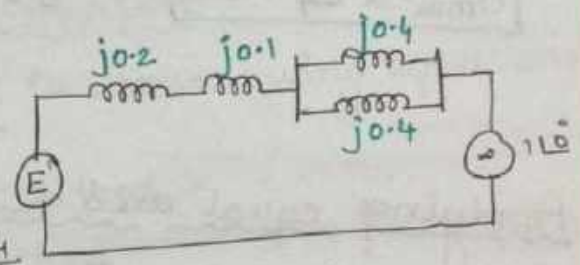 j0.4
j0.2 j0.1
j0.4
E
∞ 1∠0°